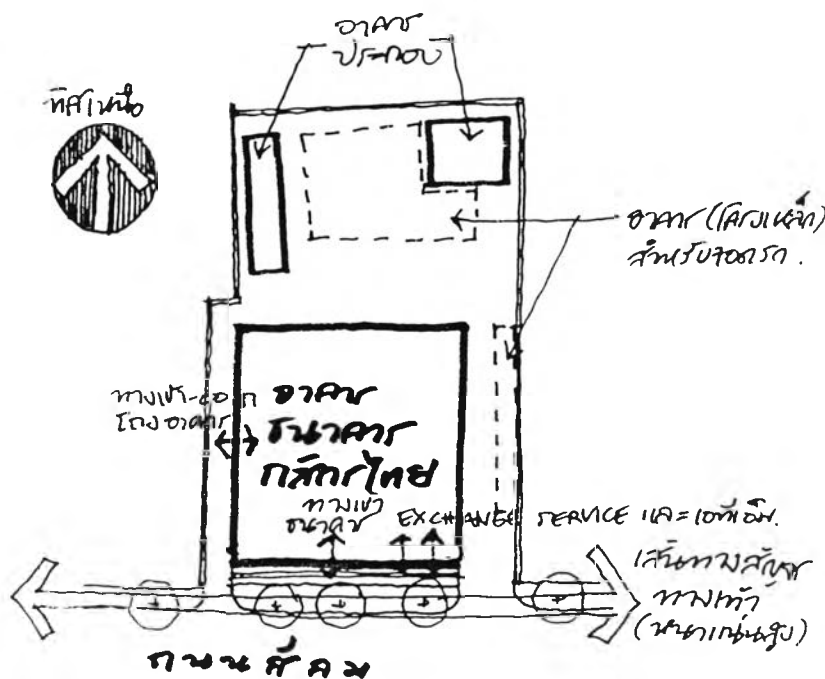 อาคาร
ประกอบ
ทิศเหนือ
อาคาร (โครงเหล็ก)
สำหรับจอดรถ.
ทางเข้า-ออก
โถงอาคาร
อาคาร
ธนาคาร
กสิกรไทย
ทางเข้า
ธนาคาร
EXCHANGE SERVICE และ เอทีเอ็ม.
เส้นทางสัญจร
ทางเท้า
(หนาแน่นสูง)
ถนนสีลม